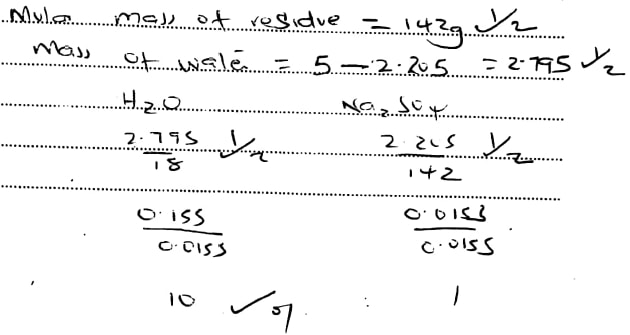 Molar mass of residue = 142g √ 1/2
Mass of water = 5 - 2.205 = 2.795 √ 1/2
H2O Na2SO4
2.795/18 √ 1/2 2.205/142 √ 1/2
0.155/0.0155 0.0155/0.0155
10 √ : 1